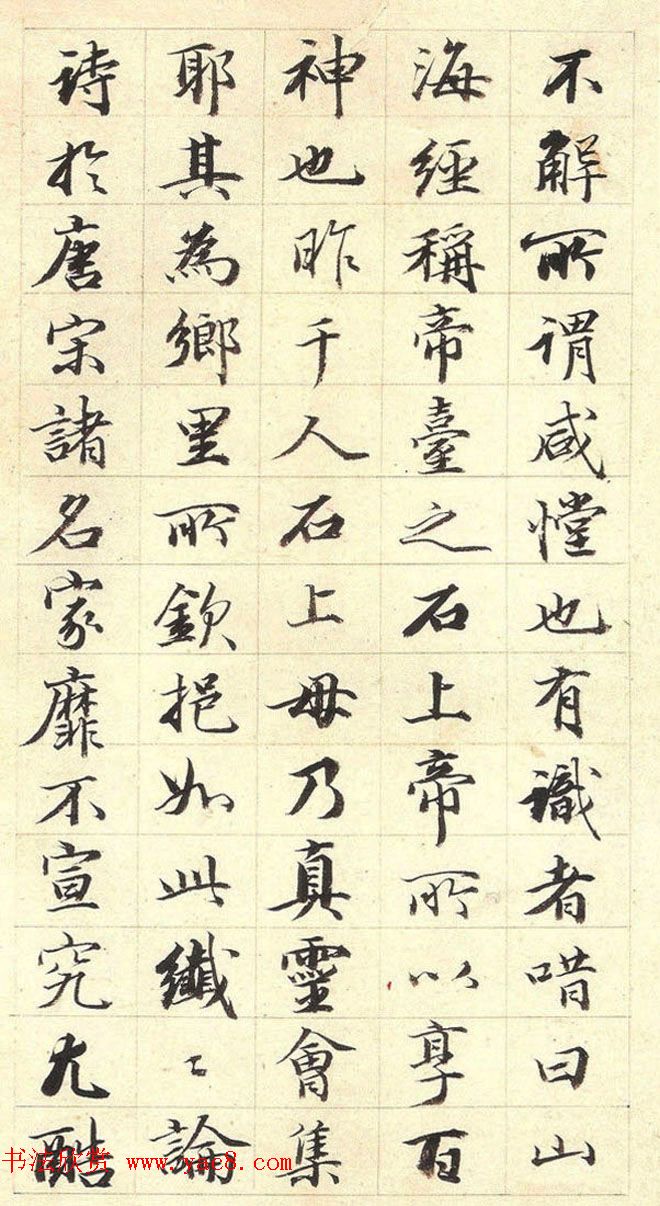 不解所謂咸憆也有識者唶曰山
海經稱帝臺之石上帝所以享百
神也昨千人石上毋乃真靈會集
耶其為鄉里所欽挹如此纖〻論
詩於唐宋諸名家靡不宣究尤酷
书法欣赏 www.yac8.com